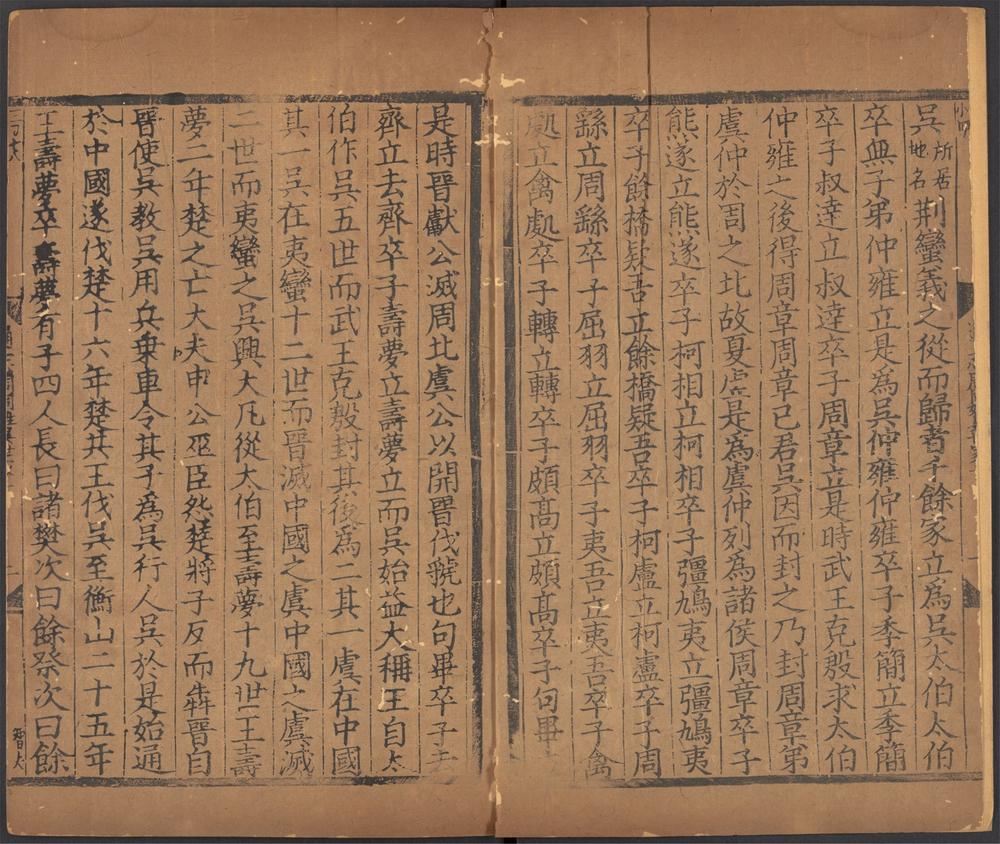 吳所居地名荆蠻義之從而歸者千餘家立為吳太伯太伯
卒無子弟仲雍立是為吳仲雍仲雍卒子季簡立季簡
卒子叔達立叔達卒子周章立是時武王克殷求太伯
仲雍之後得周章周章已君吳因而封之乃封周章弟
虞仲於周之北故夏虛是為虞仲列為諸侯周章卒子
熊遂立熊遂卒子柯相立柯相卒子彊鳩夷立彊鳩夷
卒子餘橋疑吾立餘橋疑吾卒子柯盧立柯盧卒子周
繇立周繇卒子屈羽立屈羽卒子夷吾立夷吾卒子禽
處立禽處卒子轉立轉卒子頗髙立頗髙卒子句畢
是時晉獻公滅周北虞公以開晉伐虢也句畢卒子去
齊立去齊卒子壽夢立壽夢立而吳始益大稱王自太
伯作吳五世而武王克殷封其後為二其一虞在中國
其一吳在夷蠻十二世而晉滅中國之虞中國之虞滅
二世而夷蠻之吳興大凡從太伯至壽夢十九世王壽
夢二年楚之亡大夫申公巫臣怨楚將子反而犇晉自
晉使吳教吳用兵乗車令其子為吳行人吳於是始通
於中國遂伐楚十六年楚共王伐吳至衡山二十五年
王壽夢卒壽夢有子四人長曰諸樊次曰餘祭次曰餘